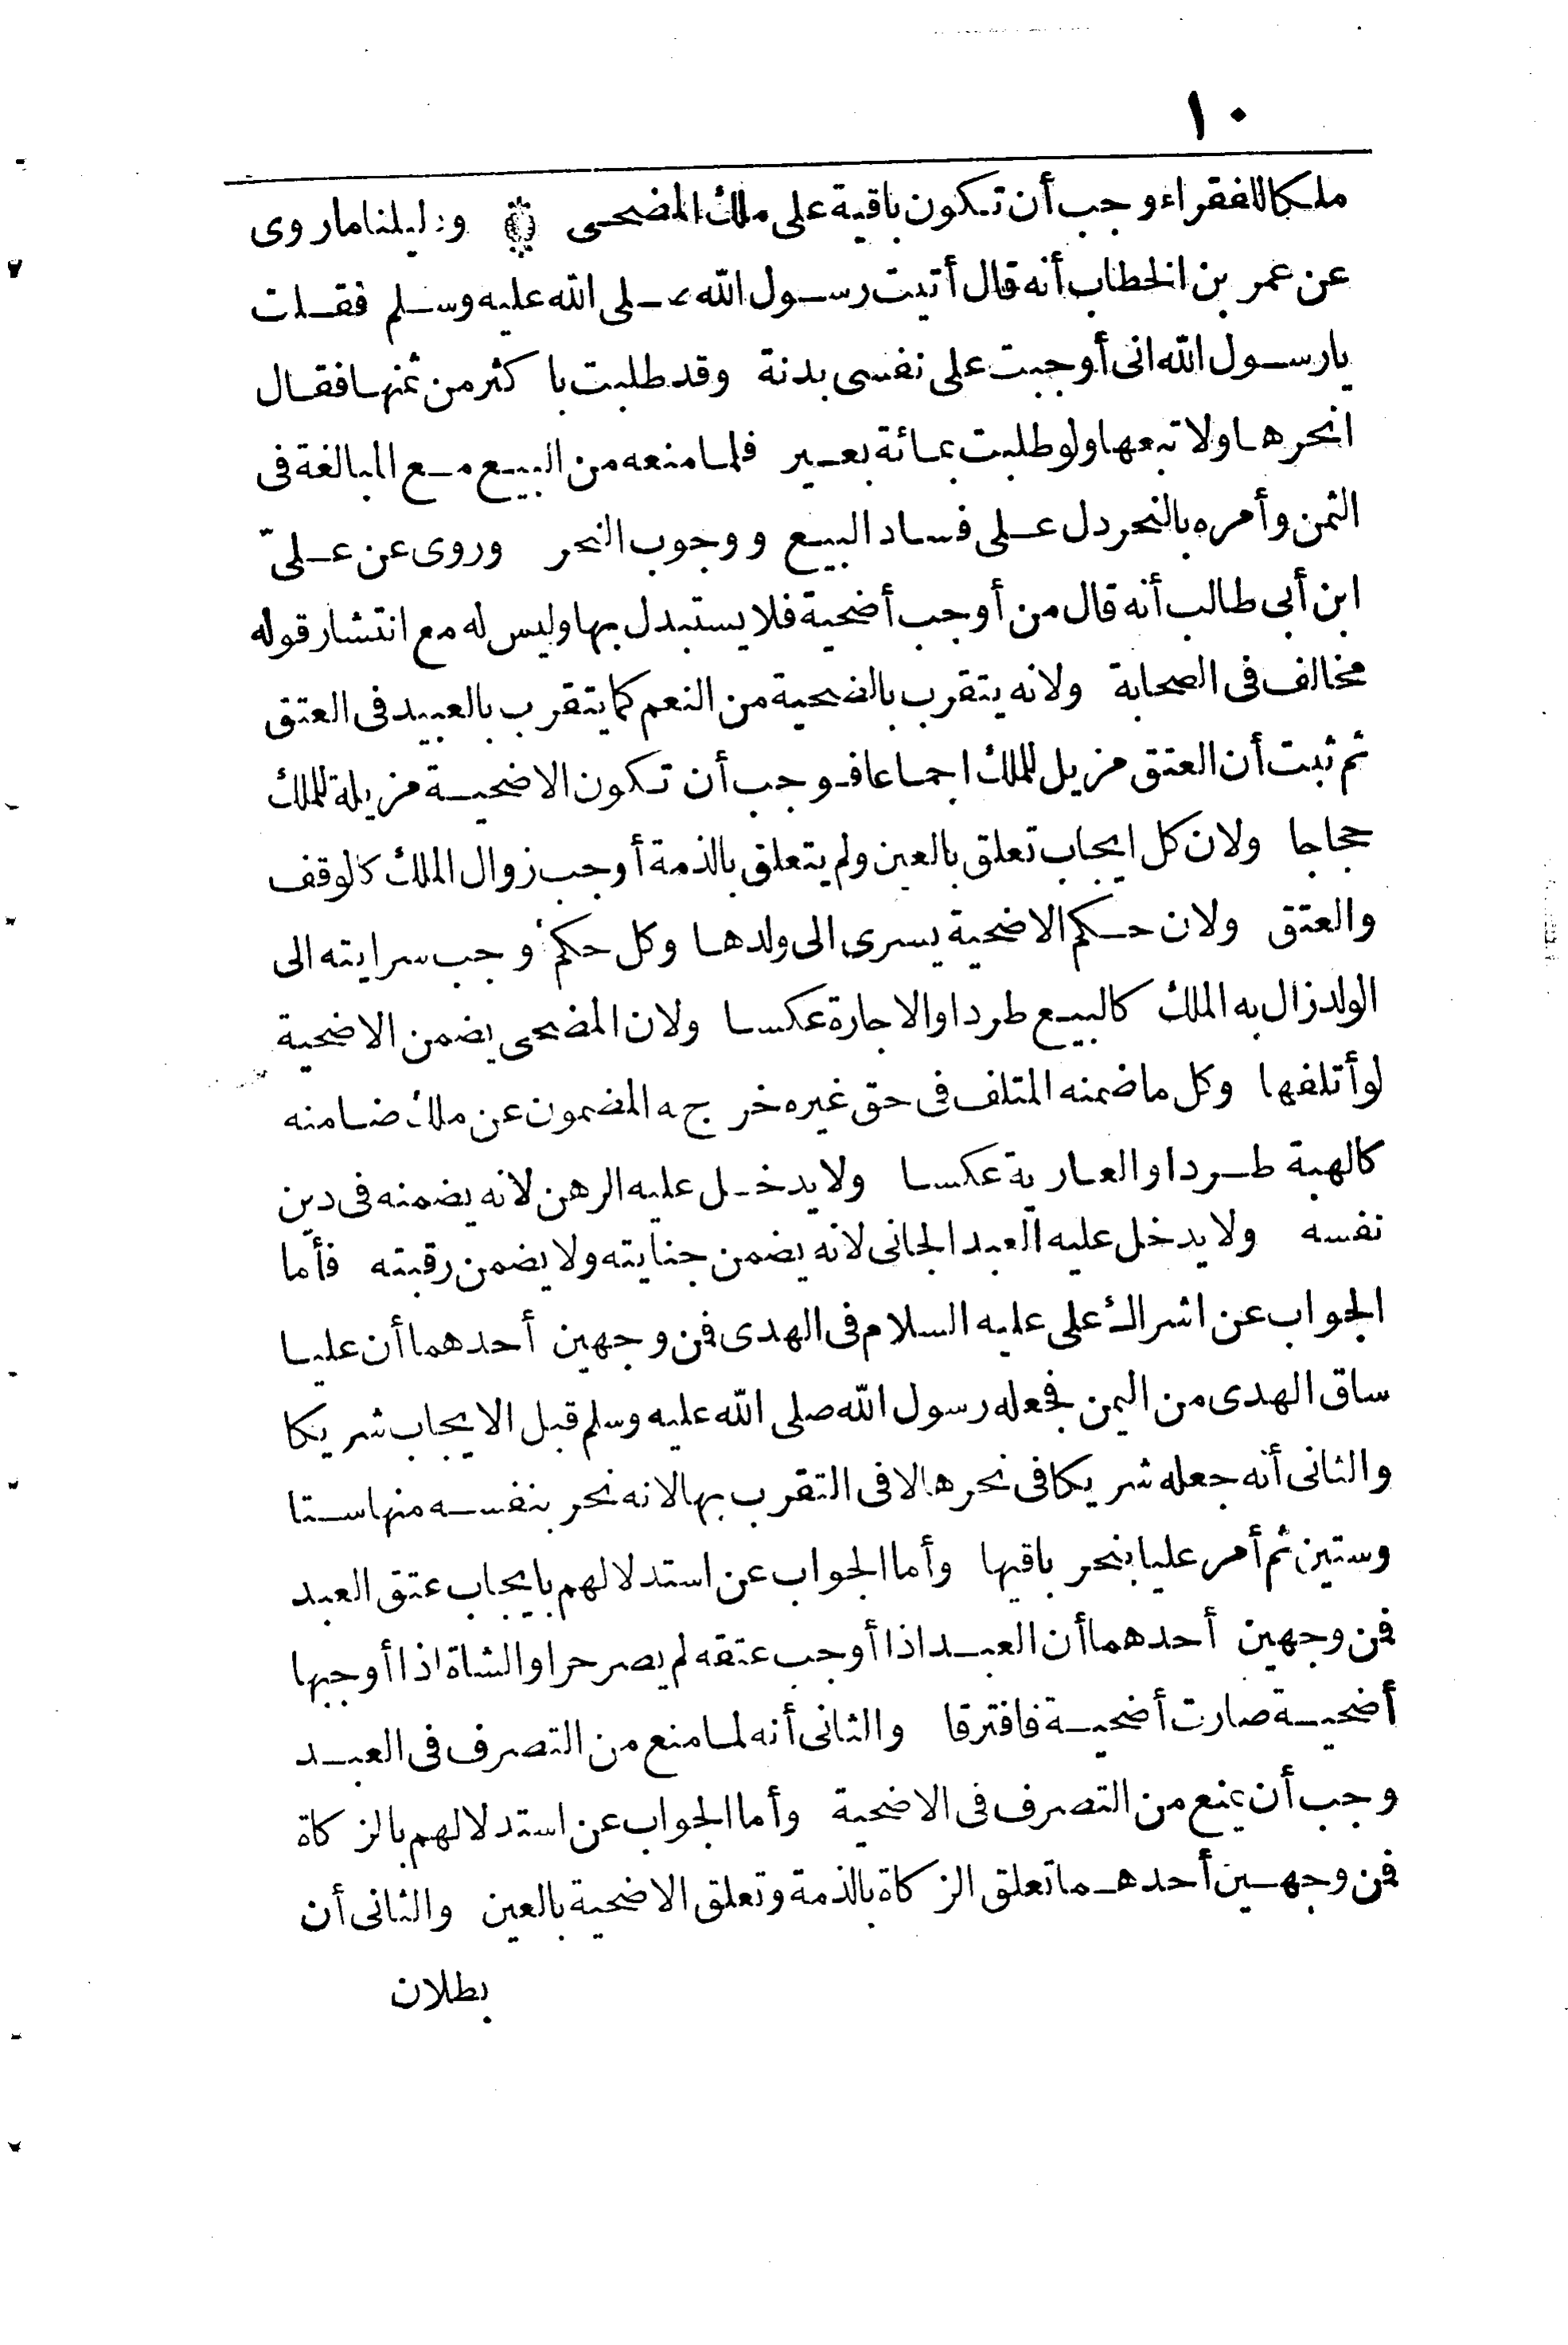 ١٠
ملكا للفقراء وجب أن تكون باقية على ملك المضحى ۞ ودليلنا ما روى
عن عمر بن الخطاب أنه قال أتيت رسول الله صلى الله عليه وسلم فقلت
يا رسول الله انى أوجبت على نفسى بدنة وقد طلبت با كثر من ثمنها فقال
انحرها ولا تبعها ولو طلبت بمائة بعير فلما منعه من البيع مع المبالغة فى
الثمن وأمره بالنحر دل على فساد البيع ووجوب النحر وروى عن علىّ
ابن أبى طالب أنه قال من أوجب أضحية فلا يستبدل بها وليس له مع انتشار قوله
مخالف فى الصحابة ولانه يتقرب بالضحية من النعم كما يتقرب بالعبيد فى العتق
ثم ثبت أن العتق مزيل للملك اجماعا فوجب أن تكون الاضحية مزيلة للملك
حجاجا ولان كل ايجاب تعلق بالعين ولم يتعلق بالذمة أوجب زوال الملك كالوقف
والعتق ولان حكم الاضحية يسرى الى ولدها وكل حكم وجب سرايته الى
الولد زال به الملك كالبيع طردا والاجارة عكسا ولان المضحى يضمن الاضحية
لو أتلفها وكل ما ضمنه المتلف فى حق غيره خرج به المضمون عن ملك ضامنه
كالهبة طردا والعارية عكسا ولا يدخل عليه الرهن لانه يضمنه فى دين
نفسه ولا يدخل عليه العبد الجانى لانه يضمن جنايته ولا يضمن رقبته فأما
الجواب عن اشراك على عليه السلام فى الهدى فمن وجهين أحدهما أن عليا
ساق الهدى من اليمن فجعله رسول الله صلى الله عليه وسلم قبل الايجاب شريكا
والثانى أنه جعله شريكا فى نحرها لا فى التقرب بها لانه نحر بنفسه منها ستا
وستين ثم أمر عليا بنحر باقيها وأما الجواب عن استدلالهم بايجاب عتق العبد
فمن وجهين أحدهما أن العبد اذا أوجب عتقه لم يصر حرا والشاة اذا أوجبها
أضحية صارت أضحية فافترقا والثانى أنه لما منع من التصرف فى العبد
وجب أن يمنع من التصرف فى الاضحية وأما الجواب عن استدلالهم بالزكاة
فمن وجهين أحدهما تعلق الزكاة بالذمة وتعلق الاضحية بالعين والثانى أن
بطلان